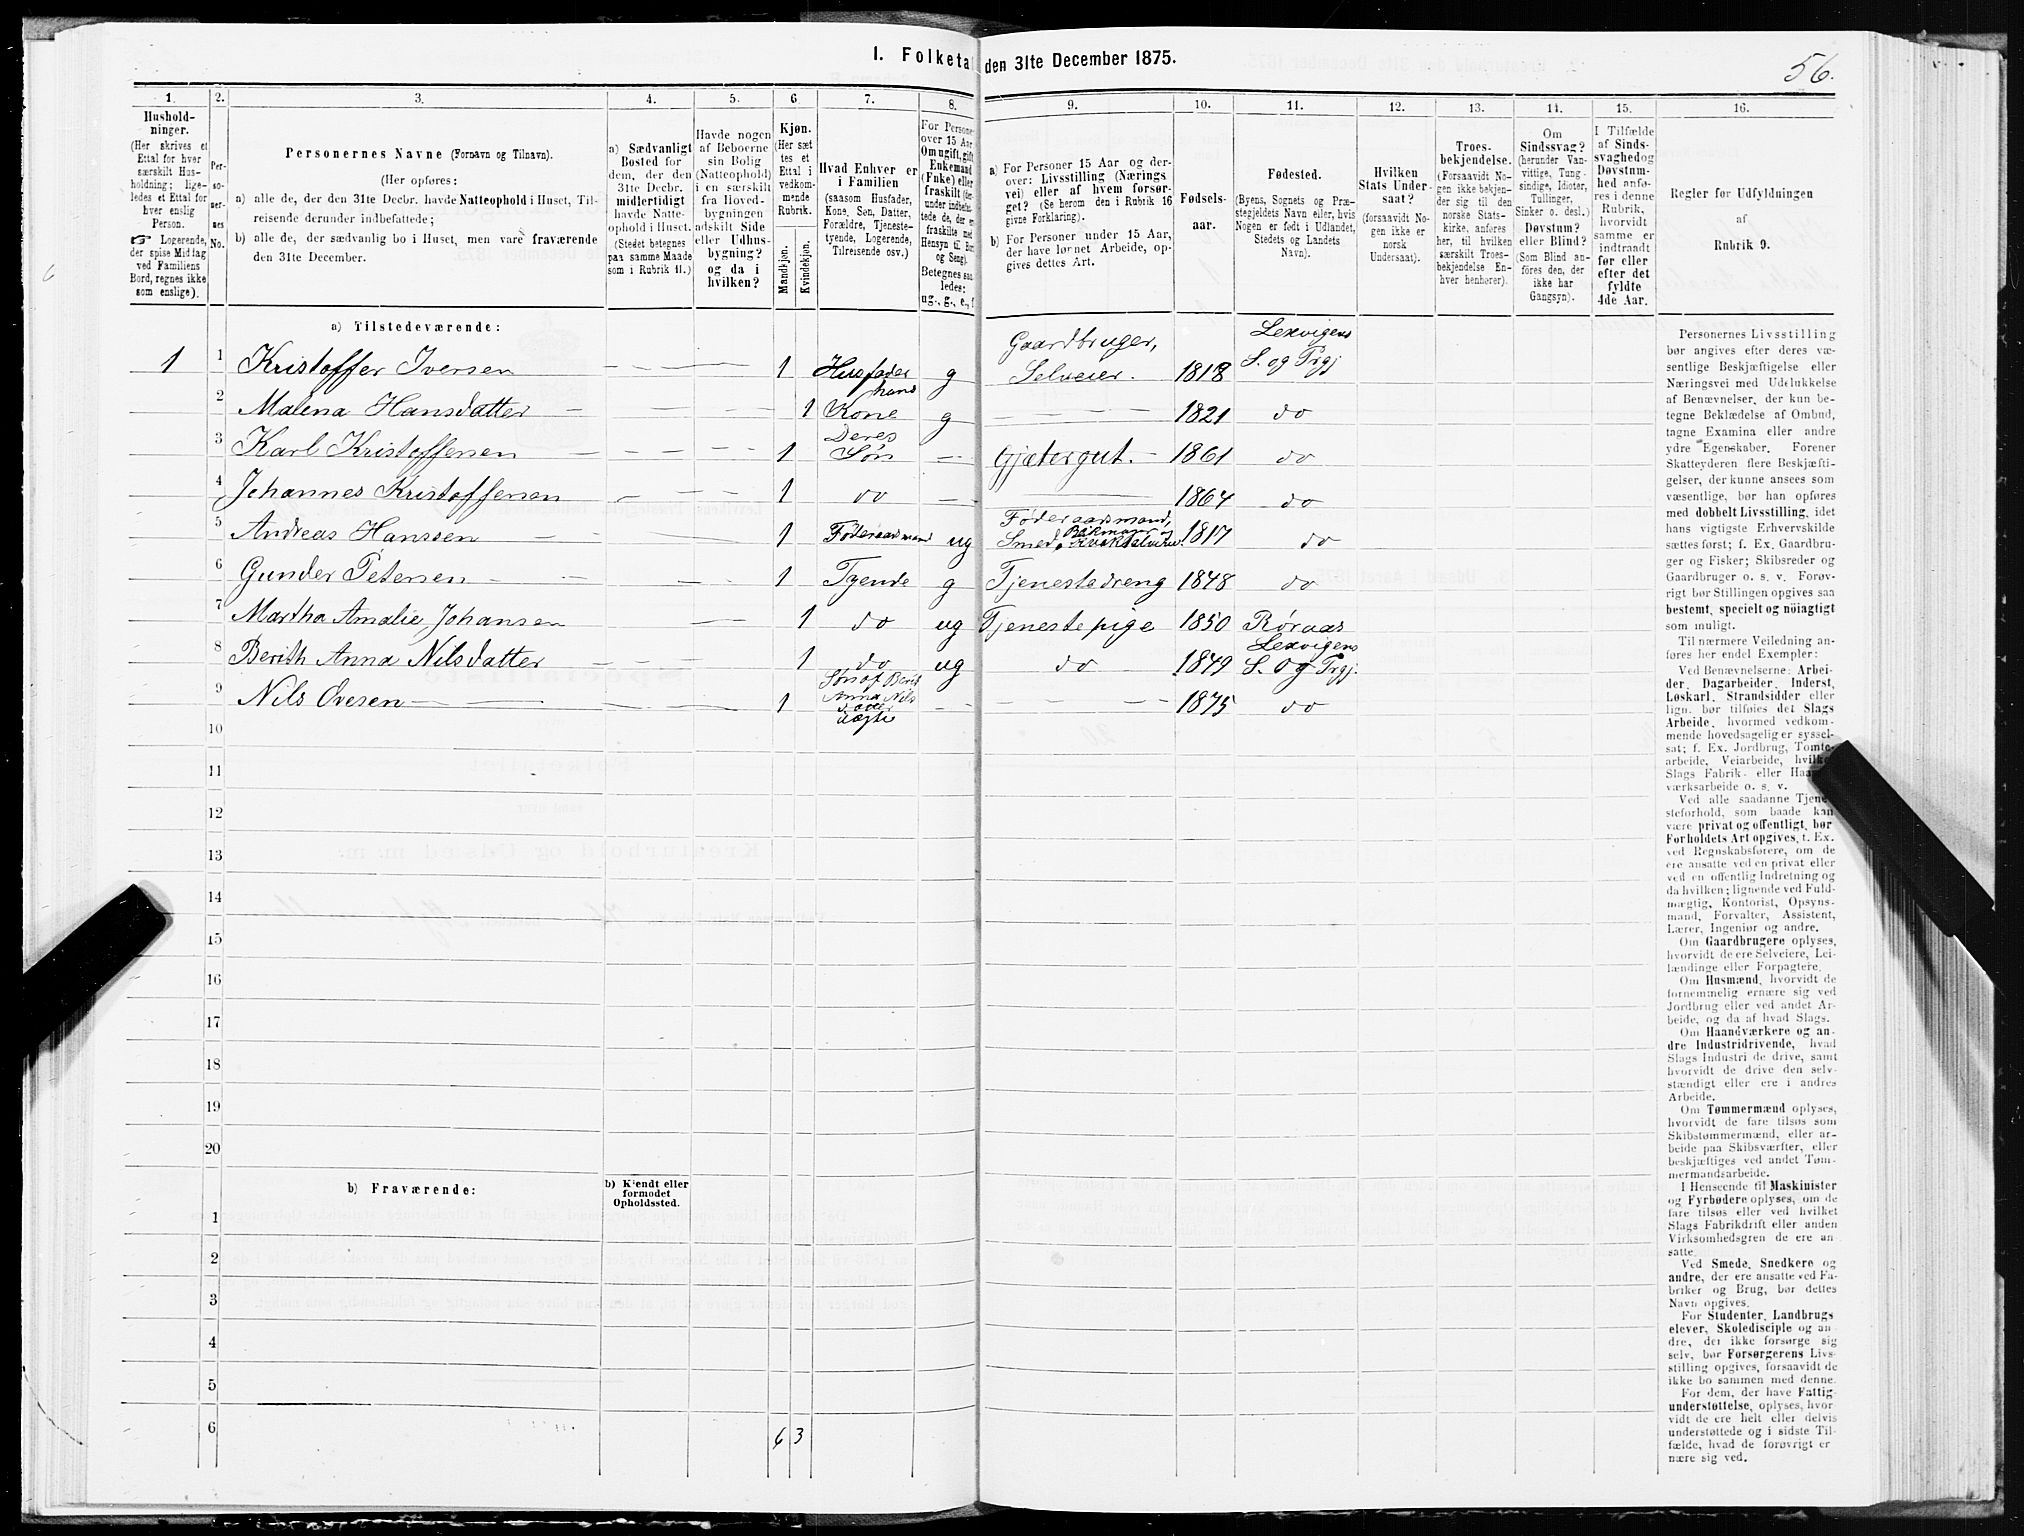 I. Folketal den 31te December 1875.
56.
1. 2. 3. 4. 5. 6. 7. 8. 9. 10. 11. 12. 13. 14. 15. 16.
Husholdninger.
(Her skrives et
Ettal for hver
særskilt Husholdning; ligeledes
et Ettal for
hver enslig
Person.
☞ Logerende,
der spise Middag
ved Familiens
Bord, regnes ikke
som enslige).
Personernes No.
Personernes Navne (Fornavn og Tilnavn).
(Her opføres:
a) alle de, der den 31te Decbr. havde Natteophold i Huset, Tilreisende derunder indbefattede;
b) alle de, der sædvanlig bo i Huset, men vare fraværende
den 31te December.
a) Sædvanligt
Bosted for
dem, der den
31te Decbr.
midlertidigt
havde Natteophold i Huset.
(Stedet betegnes
paa samme Maade
som i Rubrik 11.)
Havde nogen
af Beboerne
sin Bolig
(Natteophold)
i en særskilt
fra Hovedbygningen
adskilt Side
eller Udhusbygning?
og da i
hvilken?
Kjøn.
(Her sættes et
Ettal i
vedkommende
Rubrik.
Mandkjøn.
Kvindekjøn.
Hvad Enhver er
i Familien
(saasom Husfader,
Kone, Søn, Datter,
Forældre, Tjenestetyende, Logerende,
Tilreisende osv.)
For Personer
over 15 Aar
Om ugift, gift
Enkemand
(Enke) eller
fraskilt
Betegnes saaledes:
ug., g., e., f.
a) For Personer 15 Aar og derover: Livsstilling (Næringsvei) eller af hvem forsørget? (Se herom den i Rubrik 16
givne Forklaring).
b) For Personer under 15 Aar,
der have lønnet Arbeide, opgives dettes Art.
Fødselsaar.
Fødested.
(Byens, Sognets og Præstegjeldets Navn eller, hvis
Nogen er født i Udlandet,
Stedets og Landets
Navn).
Hvilken
Stats Undersaat?
(forsaavidt Nogen ikke er
norsk
Undersaat).
Troesbekjendelse.
(Forsaavidt Nogen ikke bekjender sig til den
norske Statskirke, anføres
her, til hvilken
særskilt Troesbekjendelse Enhver henhører).
Om
Sindssvag?
(herunder Vanvittige, Tungsindige, Idioter,
Tullinger,
Sinker o. desl.)
Døvstum?
eller Blind?
(Som Blind anføres den, der
ikke har
Gangsyn).
I Tilfælde
af Sindssvaghed og
Døvstumhed anføres i denne
Rubrik,
hvorvidt
samme er
indtraadt
før eller
efter det
fyldte
4de Aar.
Regler før Udfyldningen
af
Rubrik 9.
a) Tilstedeværende:
1 1 Kristoffer Iversen 1 Husfader g Gaardbruger, Selveier. 1818 Lexvigens S. og Prgj
2 Malena Hansdatter 1 hans Kone g 1821 do
3 Karl Kristoffersen 1 Deres Søn Gjætergut. 1861 do
4 Johannes Kristoffersen 1 do 1864 do
5 Andreas Hanssen 1 Føderaadsmand ug Føderaadsmand, Smed, 1817 do
6 Gunder Petersen 1 Tyende g Tjenestedreng 1848 do
7 Martha Amalie Johansen 1 do ug Tjenestepige 1850 Røraas
8 Berith Anna Nilsdatter 1 do ug do 1849 Lexvigens S. og Prgj.
9 Nils Ovesen 1 Søn af Berit Anna Nilsdatter uægte 1875 do
10
11
12
13
14
15
16
17
18
19
20
b) Fraværende:
b) Kjendt eller
formodet
Opholdssted.
1
2
3
4
5
6
6 3
Personernes Livsstilling
bør angives efter deres væsentlige Beskjæftigelse eller
Næringsvei med Udelukkelse
af Benævnelser, der kun betegne Beklædelse af Ombud,
tagne Examina eller andre
ydre Egenskaber. Forener
Skatteyderen flere Beskjæftigelser, der kunne ansees som
væsentlige, bør han opføres
med dobbelt Livsstilling, idet
hans vigtigste Erhvervskilde
sættes først; f. Ex. Gaardbruger og Fisker; Skibsreder og
Gaardbruger o. s. v. Forøvrigt bør Stillingen opgives saa
bestemt, specielt og nöiagtigt
som muligt.
Til nærmere Veiledning anføres her endel Exempler:
Ved Benævnelserne: Arbeider, Dagarbeider, Inderst,
Løskarl, Strandsidder eller
lign. bør tilføies det Slags
Arbeide, hvormed vedkommende hovedsagelig er sysselsat; f. Ex. Jordbrug, Tomtearbeide, Veiarbeide, hvilket
Slags Fabrik- eller Haandværksarbeide o. s. v.
Ved alle saadanne Tjenesteforhold, som baade kan
være privat og offentligt, bør
Forholdets Art opgives, t. Ex.
ved Regnskabsførere, om de
ere ansatte ved en privat eller
ved en offentlig Indretning og
da hvilken; lignende ved Fuldmægtig, Kontorist, Opsynsmand, Forvalter, Assistent,
Lærer, Ingeniør og andre.
Om Gaardbrugere oplyses,
hvorvidt de ere Selveiere, Leilændinge eller Forpagtere.
Om Husmænd, hvorvidt de
fornemmelig ernære sig ved
Jordbrug eller ved andet Arbeide, og da af hvad Slags.
Om Haandværkere og andre Industridrivende, hvad
Slags Industri de drive, samt
hvorvidt de drive den selvstændigt eller ere i andres
Arbeide.
Om Tømmermænd oplyses,
hvorvidt de fare tilsøs som
Skibstømmermænd, eller arbeide paa Skibsværfter, eller
beskjæftiges ved andet Tømmermandsarbeide.
I Henseende til Maskinister
og Fyrbødere oplyses, om de
fare tilsøs eller ved hvilket
Slags Fabrikdrift eller anden
Virksomhedsgren de ere ansatte.
Ved Smede, Snedkere og
andre, der ere ansatte ved Fabriker og Brug, bør dettes
Navn opgives.
For Studenter, Landbrugselever, Skoledisciple og andre, der ikke forsørge sig
selv, bør Forsørgerens Livsstilling opgives, forsaavidt de
ikke bo sammen med denne.
For dem, der have Fattigunderstøttelse, oplyses, hvorvidt de ere helt eller delvis
understøttede og i sidste Tilfælde, hvad de forøvrigt ernære sig ved.